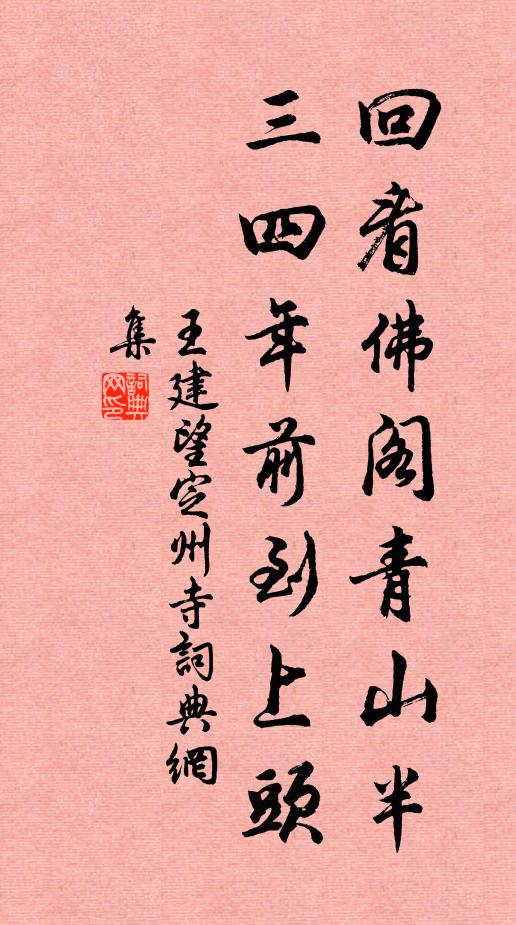 回看佛阁青山半
三四年前到上頭
王建望定州寺詞典網
集
詞典
网印